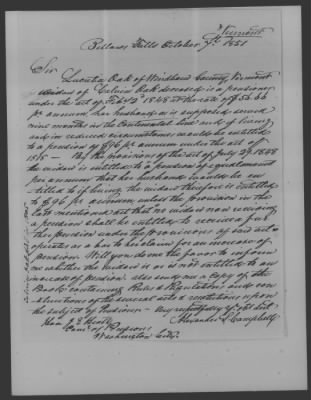 Vermont
Bellows Falls October 7th 1851
Sir
Lucretia Oak of Windham County, Vermont
widow of Calvin Oak deceased is a pensioner
under the act of Feb 2d 1848 at the rate of $56.66
pr annum, her husband as is supposed served
nine months in the Continental line and if living
and in reduced circumstances would be entitled
to a pension of $96 pr annum under the act of
1818 — By the provisions of the act of July 29 1848
the widow is entitled to a pension of equal amount
per annum that her husband would be en
titled to if living the widow therefore is entitled
to $96 pr annum unless the provision in the
last mentioned act that no widow now receiving
a pension shall be entitled to receive a fur
ther pension under the provisions of said act
operates as a bar to her claim for an increase of
pension. Will you do me the favor to inform
me whether the widow is or is not entitled to an
increase of pension also send me a Copy of the
Book containing Rules & Regulations and con
structions of the several acts & resolutions upon
the subject of Pensions — Very respectfully yr obt Servt
Hon J E Heath
Alexander S. Campbell
Com of Pensions
Washington City